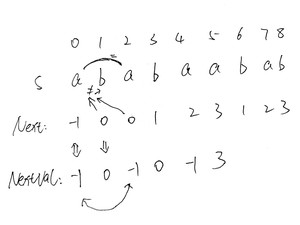 0 1 2 3 4 5 6 7 8
S a b a b a a b a b
≠a
Next: -1 0 0 1 2 3 1 2 3
NextVal: -1 0 -1 0 -1 3